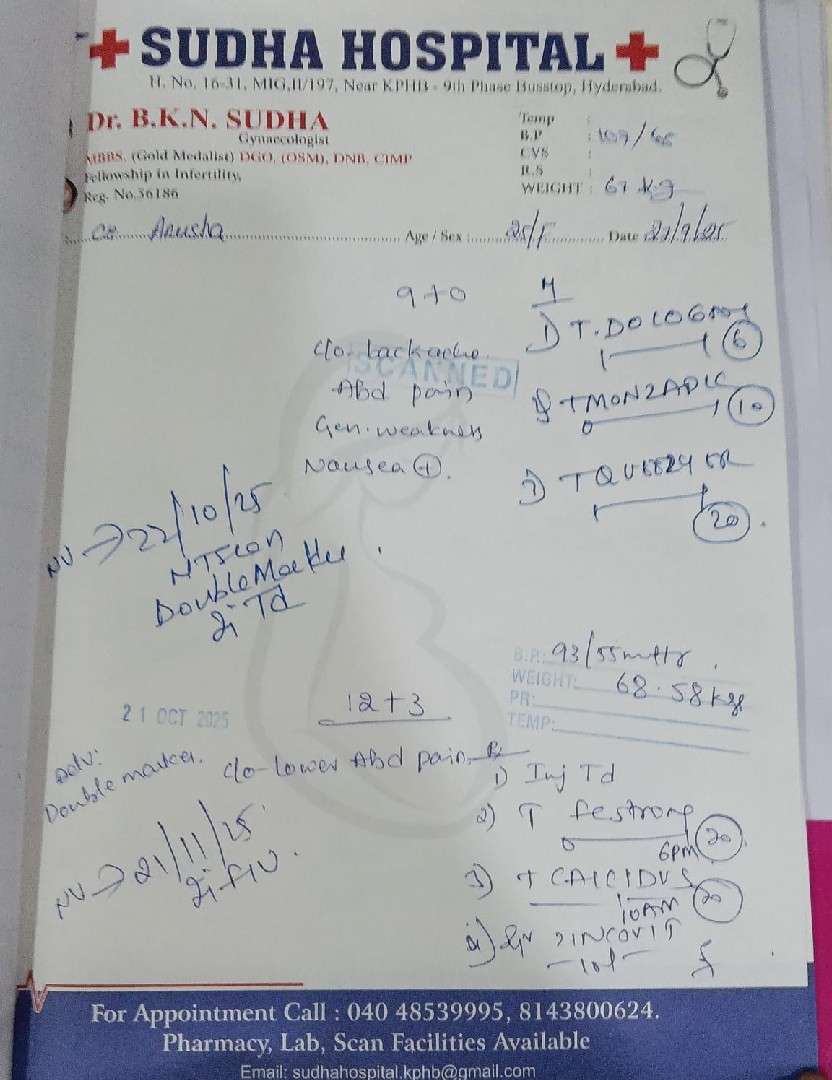 SUDHA HOSPITAL
H. No. 16-31, MIG,II/197, Near KPHB - 9th Phase Busstop, Hyderabad.
Dr. B.K.N. SUDHA
Gynaecologist
MBBS, (Gold Medalist) DGO, (OSM), DNB, CIMP
Fellowship in Infertility,
Reg. No.36186
Temp :
B.P : 107/65
CVS :
R.S :
WEIGHT : 67 kg
Anusha Age / Sex : 25/F Date 21/9/25
9+0
c/o- backache
SCANNED
Abd pain
Gen. weakness
Nausea +.
1) T. DOLO 650
6
T MONZAPIC
10
3) T
20
NV → 22/10/25
NT Scan
Double Marker
Td
B.P.: 93/55 mmHg
WEIGHT: 68.58 kgs
PR:
TEMP:
21 OCT 2025
12+3
Adv:
Double marker.
c/o- Lower Abd pain
NV → 21/11/25
Rx
1) Inj Td
2) T festrong
6PM 20
3) T CALCIDVS
10AM 20
4) ZINCOVIT
For Appointment Call : 040 48539995, 8143800624.
Pharmacy, Lab, Scan Facilities Available
Email: sudhahospital.kphb@gmail.com